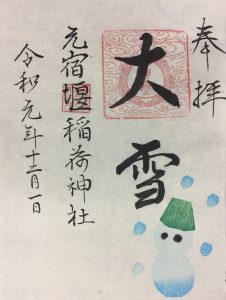 奉拝
大雪
元宿堰稲荷神社
令和元年十二月一日